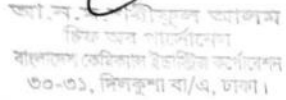 আলম
চিফ অব পার্সোনেল
বাংলাদেশ কেমিক্যাল ইন্ডাস্ট্রিজ কর্পোরেশন
৩০-৩১, দিলকুশা বা/এ, ঢাকা।